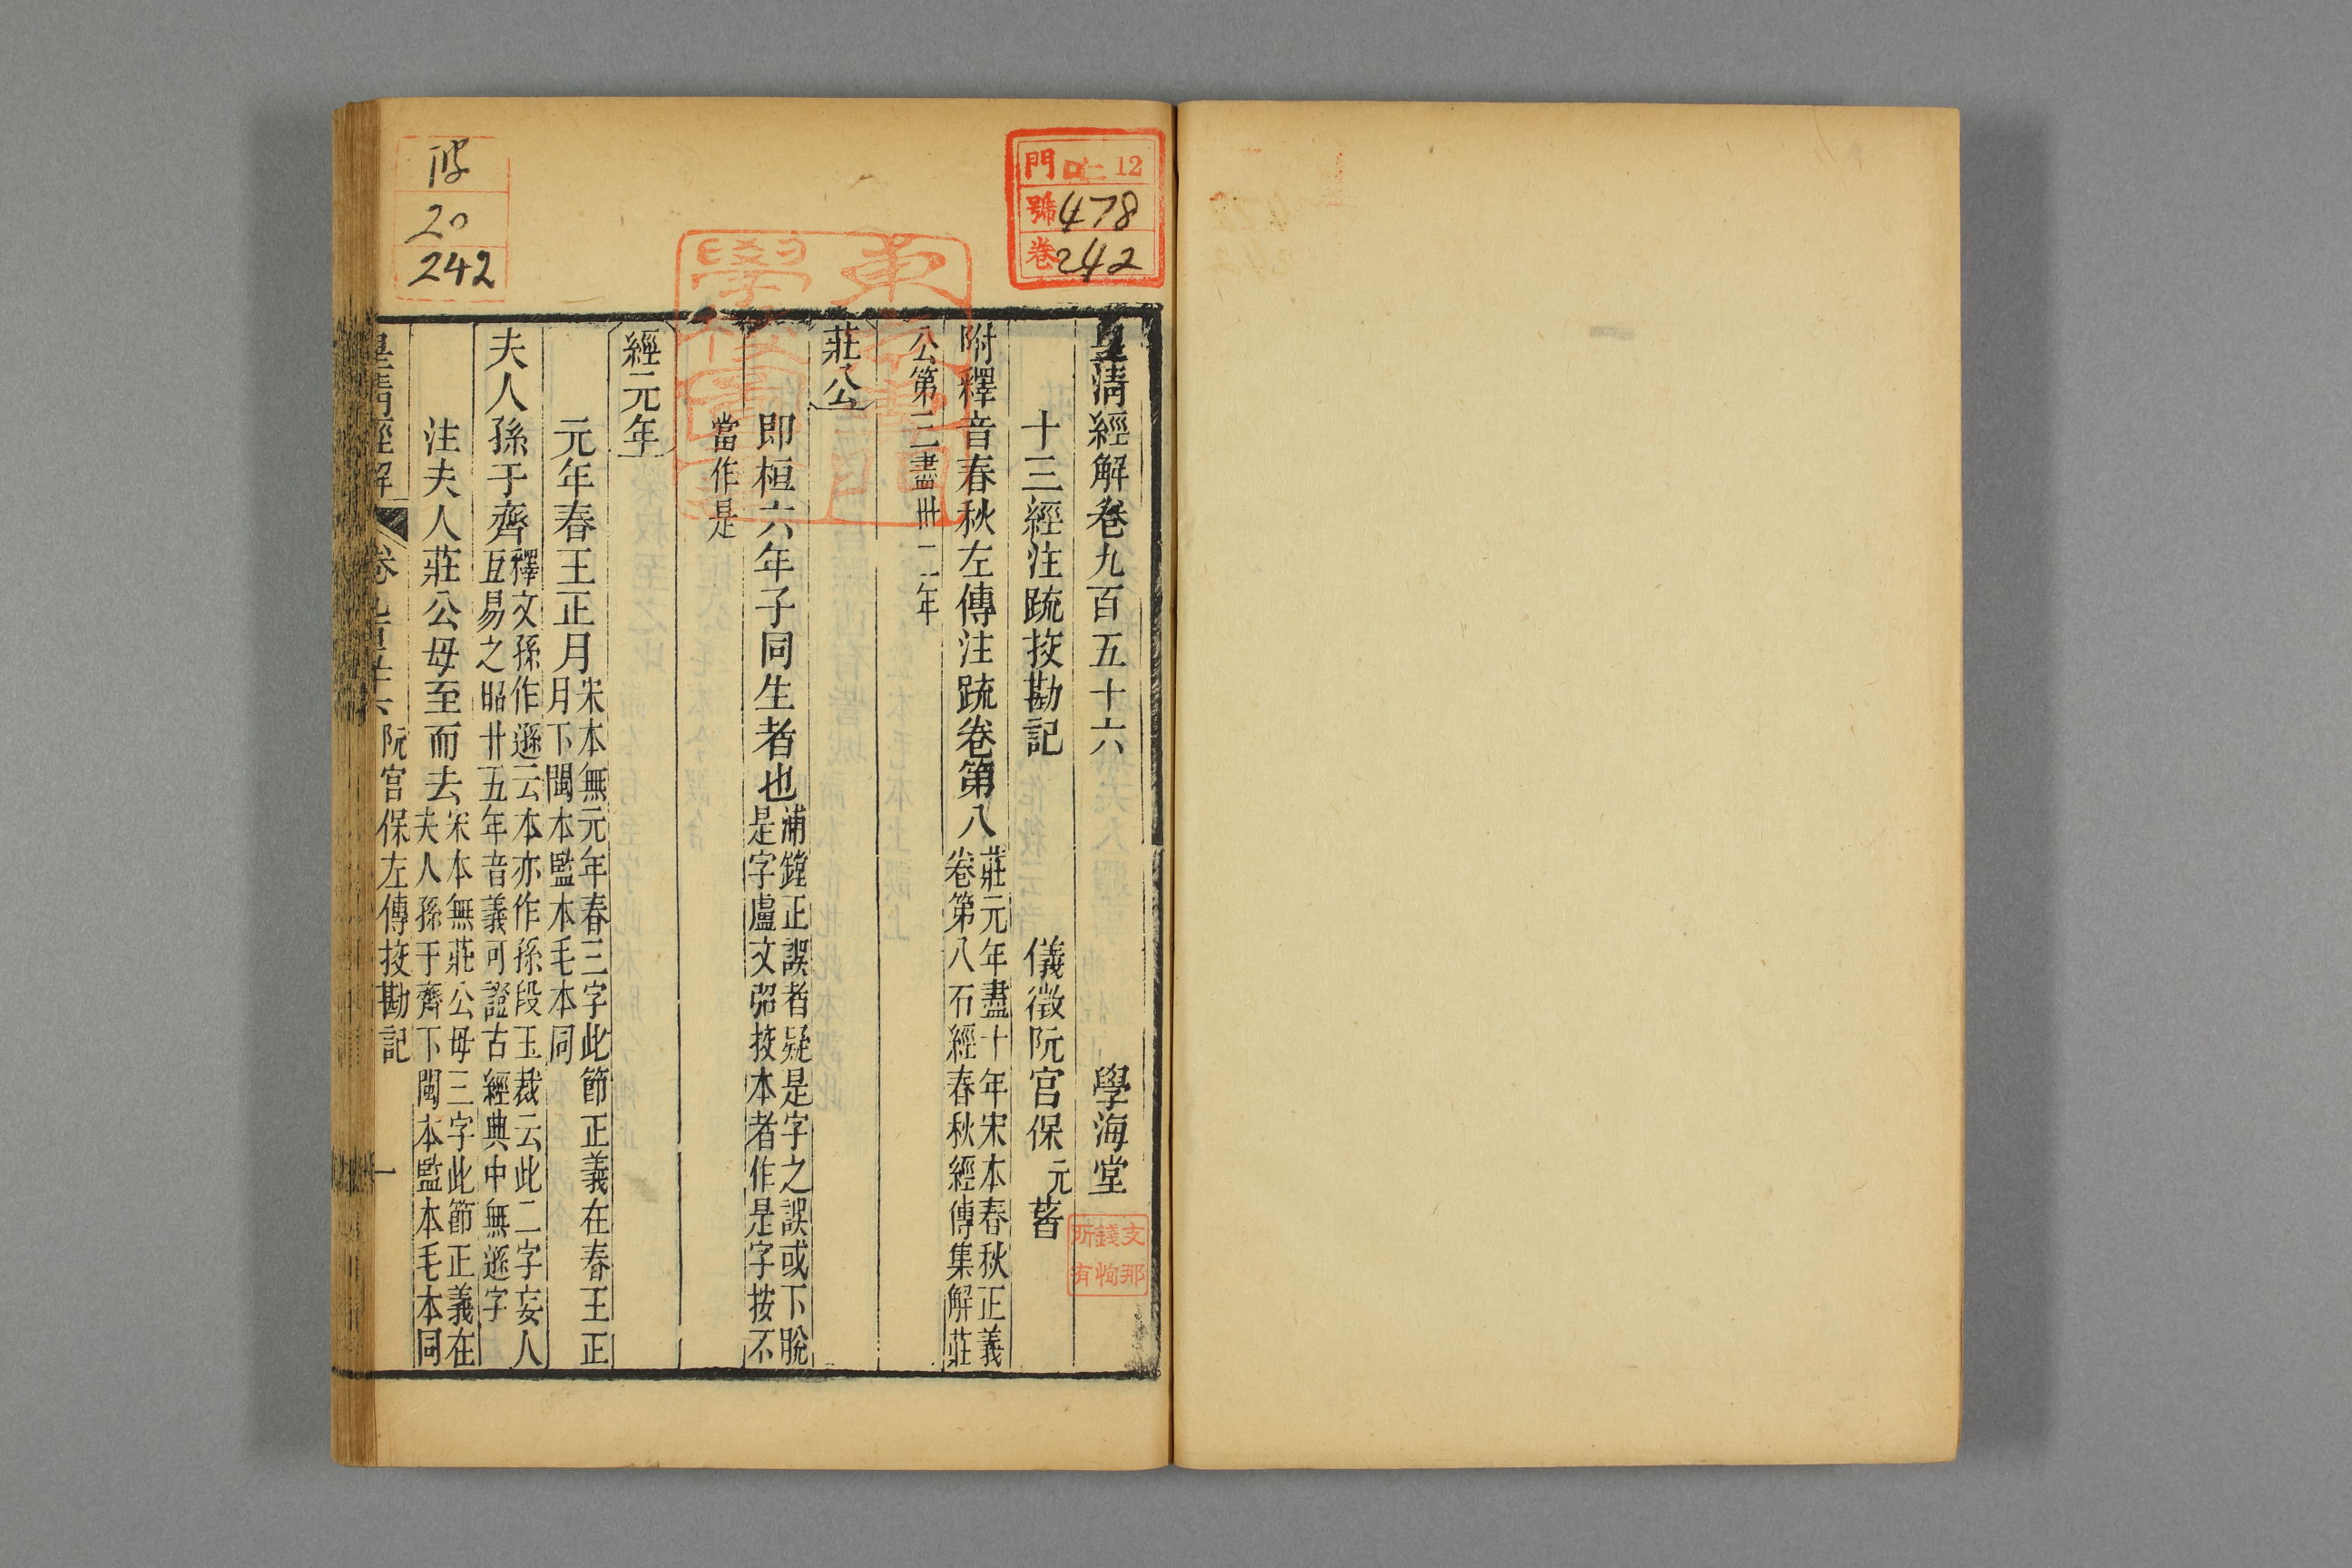 皇清經解卷九百五十六
學海堂
十三經注疏挍勘記
儀徵阮宮保元著
附釋音春秋左傳注疏卷第八
莊元年盡十年宋本春秋正義
卷第八石經春秋經傳集解莊
公第三盡卅二年
莊公
即桓六年子同生者也
浦鏜正誤者疑是字之誤或下脫
是字盧文弨挍本者作是字按不
當作是
經元年
元年春王正月
宋本無元年春三字此節正義在春王正
月下閩本監本毛本同
夫人孫于齊
釋文孫作遜云本亦作孫段玉裁云此二字妄人
互易之昭廿五年音義可證古經典中無遜字
注夫人莊公母至而去
宋本無莊公母三字此節正義在
夫人孫于齊下閩本監本毛本同
皇清經解
卷九百五十六
阮宮保左傳挍勘記
一
門 12
號 478
卷 242
20
242
支那
錢恂
所有